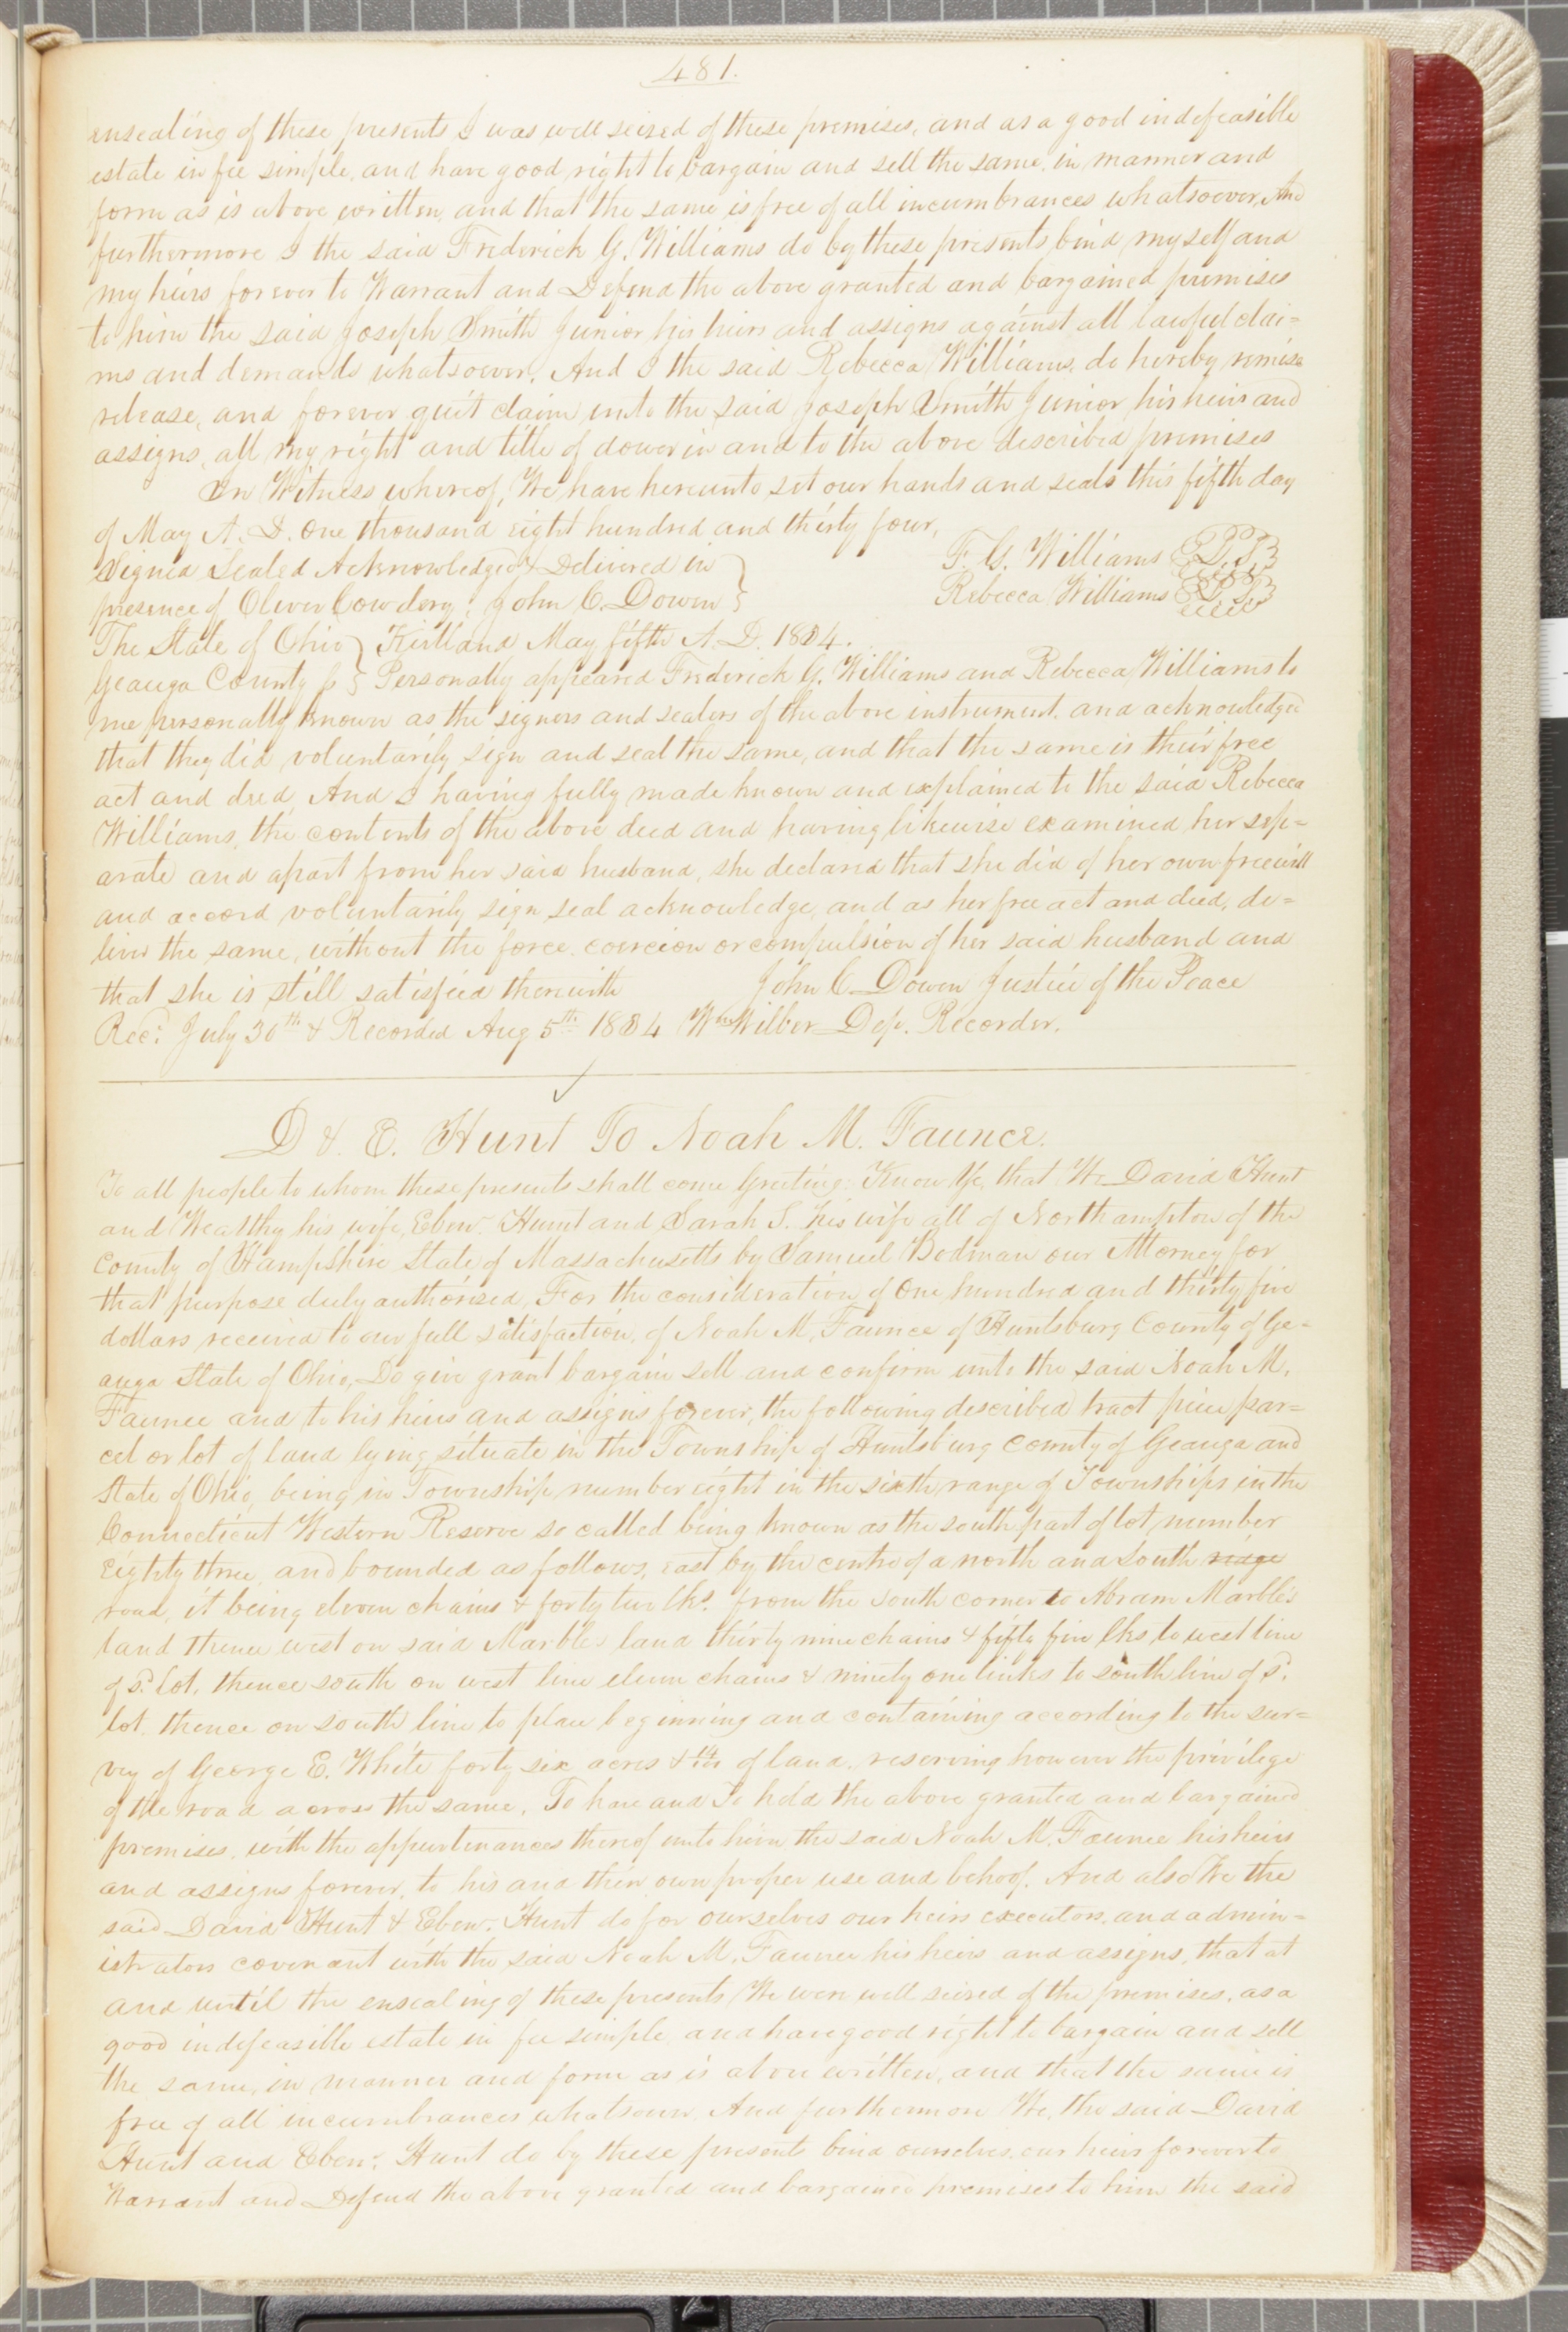 481.
ensealing of these presents I was well seized of these premises, and as a good indefeasible
estate in fee simple, and have good right to bargain and sell the same, in manner and
form as is above written, and that the same is free of all incumbrances whatsoever, And
furthermore I the said Frederick G. Williams do by these presents bind myself and
my heirs forever to Warrant and Defend the above granted and bargained premises
to him the said Joseph Smith Junior his heirs and assigns against all lawful clai=
ms and demands whatsoever. And I the said Rebecca Williams, do hereby remise
release, and forever quit claim unto the said Joseph Smith Junior, his heirs and
assigns, all my right and title of dower in and to the above described premises
In Witness whereof, We have hereunto set our hands and seals this fifth day
of May A. D. One thousand eight hundred and thirty four,
Signed Sealed Acknowledged & Delivered in } F. G. Williams L. S.
presence of Oliver Cowdery; John C. Dowen } Rebecca Williams L. S.
The State of Ohio } Kirtland May fifth A. D. 1834.
Geauga County ss } Personally appeared Frederick G. Williams and Rebecca Williams to
me personally known as the signers and sealers of the above instrument, and acknowledged
that they did voluntarily sign and seal the same, and that the same is their free
act and deed, And I having fully made known and explained to the said Rebecca
Williams, the contents of the above deed and having likewise examined her sep=
arate and apart from her said husband, she declared that she did of her own free will
and accord voluntarily sign seal acknowledge, and as her free act and deed, de=
liver the same, without the force, coercion or compulsion of her said husband and
that she is still satisfied therewith John C. Dowen Justice of the Peace
Rec: July 30th & Recorded Aug 5th 1834 Wm Wilber Dep. Recorder.
D & E. Hunt To Noah M. Faunce.
To all people to whom these presents shall come Greeting: Know Ye, that We David Hunt
and Wealthy his wife, Eben. Hunt and Sarah S. his wife all of Northampton of the
County of Hampshire State of Massachusetts by Samuel Bodman our Attorney for
that purpose duly authorised, For the consideration of One hundred and thirty five
dollars received to our full satisfaction, of Noah M. Faunce of Huntsburg County of Ge=
auga State of Ohio, Do give grant bargain sell and confirm unto the said Noah M.
Faunce and to his heirs and assigns forever, the following described tract piece par=
cel or lot of land lying situate in the Township of Huntsburg County of Geauga and
State of Ohio, being in Township number eight in the sixth range of Townships in the
Connecticut Western Reserve so called being known as the south part of lot number
Eighty three, and bounded as follows, east by the centre of a north and south ridge
road, it being eleven chains & forty two lks. from the south corner to Abram Marble's
land thence west on said Marbles land thirty nine chains & fifty five lks to west line
of sd. lot, thence south on west line eleven chains & ninety one links to south line of sd.
lot. thence on south line to place beginning and containing according to the sur=
vey of George E. White forty six acres & of land, reserving however the privilege
of the road across the same, To have and To hold the above granted and bargained
premises, with the appurtenances thereof unto him the said Noah M. Faunce his heirs
and assigns forever, to his and their own proper use and behoof. And also We the
said David Hunt & Eben. Hunt do for ourselves our heirs executors, and admin=
istrators covenant with the said Noah M. Faunce his heirs and assigns, that at
and until the ensealing of these presents We were well seized of the premises, as a
good indefeasible estate in fee simple and have good right to bargain and sell
the same, in manner and form as is above written, and that the same is
free of all incumbrances whatsoever, And furthermore We, the said David
Hunt and Eben. Hunt do by these presents bind ourselves, our heirs forever to
Warrant and Defend the above granted and bargained premises to him the said